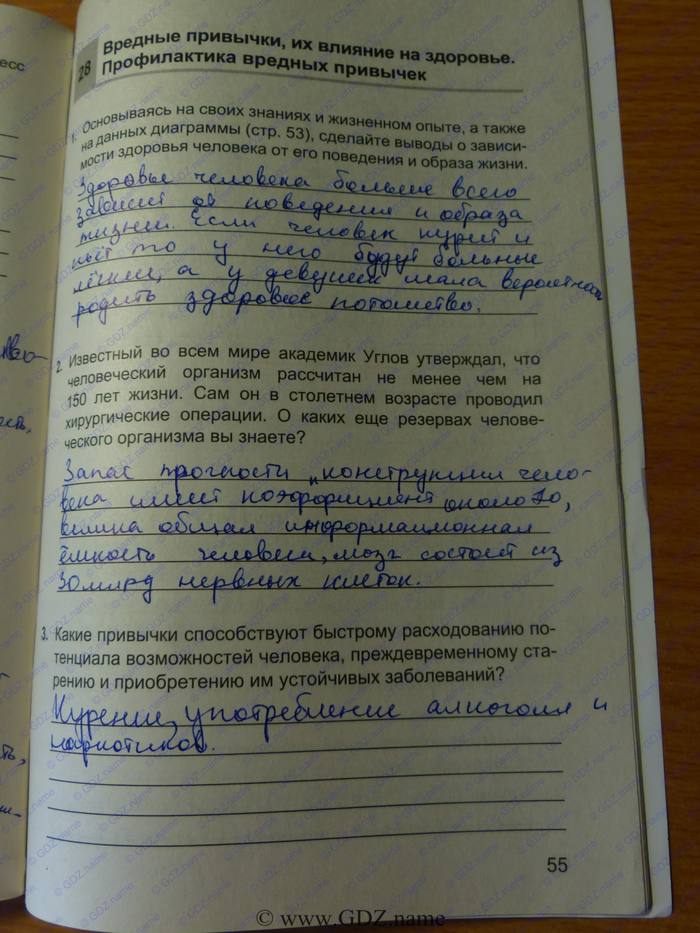 есс
28
Вредные привычки, их влияние на здоровье.
Профилактика вредных привычек
1. Основываясь на своих знаниях и жизненном опыте, а также
на данных диаграммы (стр. 53), сделайте выводы о зависи-
мости здоровья человека от его поведения и образа жизни.
Здоровье человека больше всего
зависит от поведения и образа
жизни. Если человек курит и
пьёт то у него будут больные
лёгкие, а у девушек мала вероятность
родить здоровое потомство.
2. Известный во всем мире академик Углов утверждал, что
человеческий организм рассчитан не менее чем на
150 лет жизни. Сам он в столетнем возрасте проводил
хирургические операции. О каких еще резервах челове-
ческого организма вы знаете?
Запас прочности "конструкции чело-
века имеет коэффициент около 10,
велика общая информационная
ёмкость человека, мозг состоит из
30 млрд нервных клеток.
3. Какие привычки способствуют быстрому расходованию по-
тенциала возможностей человека, преждевременному ста-
рению и приобретению им устойчивых заболеваний?
Курение, употребление алкоголя и
наркотиков.
55
© www.GDZ.name